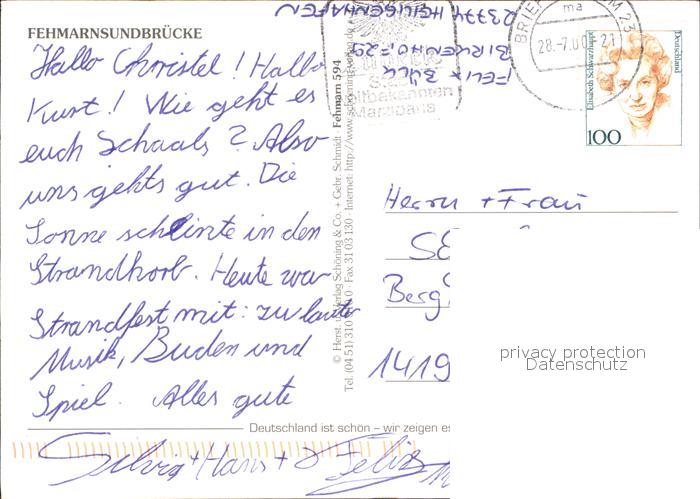 FEHMARNSUNDBRÜCKE
Hallo Christel! Hallo
Kurt! Wie geht es
euch Schaals? Also
uns gehts gut. Die
Sonne scheinte in den
Strandkorb. Heute war
Strandfest mit: zu lauter
Musik, Buden und
Spiel. Alles gute
Silvia + Hans + Felix
Deutschland ist schön – wir zeigen es
© Herst. u. Verlag Schöning & Co. + Gebr. Schmidt · Fehmarn 594
Tel. (04 51) 310 Fax 31 03 130 · Internet: http://www.schoening-verlag.de
FELIX
BIRKENHOF 29
23774 HEILIGENHAFEN
weltbekannten
Marzipans
BRIEF 23
ma
28.-7.00 - 21
Elisabeth Schwarzhaupt
Deutschland
100
Herrn + Frau
Berg
1419
privacy protection
Datenschutz